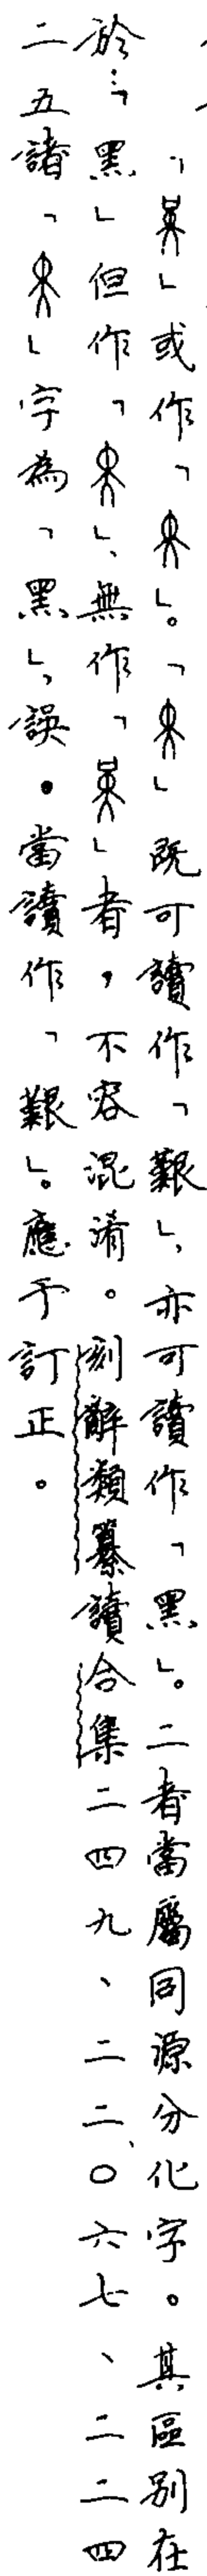 「」或作「」。「」既可讀作「艱」，亦可讀作「黑」。二者當屬同源分化字。其區別在
於：「黑」但作「」、無作「」者，不容混淆。刻辭類纂讀合集二四九、二二〇六七、二二四
二五諸「」字為「黑」，誤。當讀作「艱」。應予訂正。